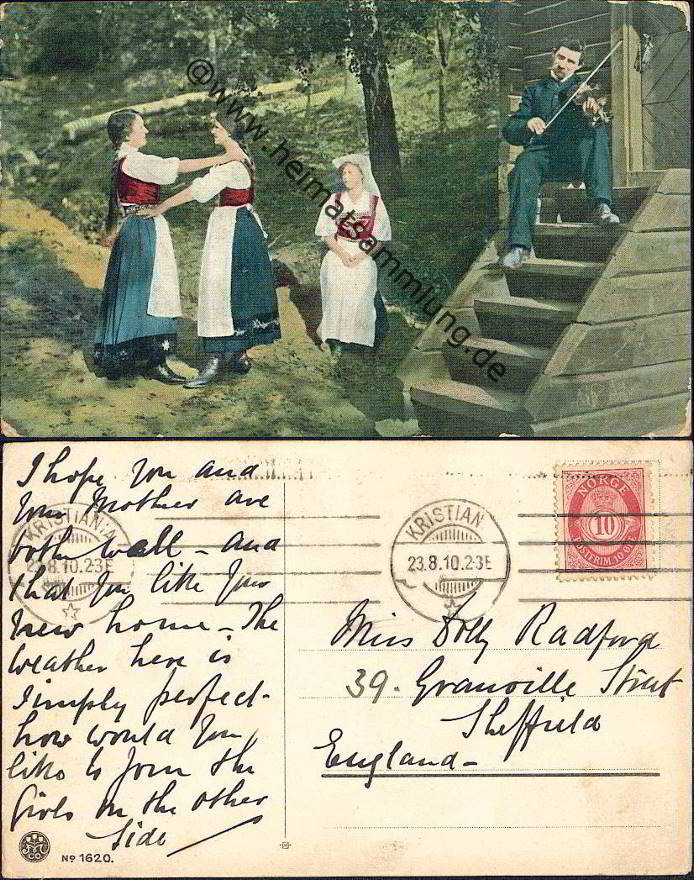 @www.heimatsammlung.de
I hope you and
your Mother are
both well - and
that you like your
new home - The
weather here is
simply perfect -
how would you
like to join the
girls on the other
side
No 1620.
CO
KRISTIANIA
23.8.10.2-3E
KRISTIAN
23.8.10.2-3E
NORGE
10
POSTFRIM. 10 ØRE
Miss Dolly Radford
39. Granville Street
Sheffield
England -